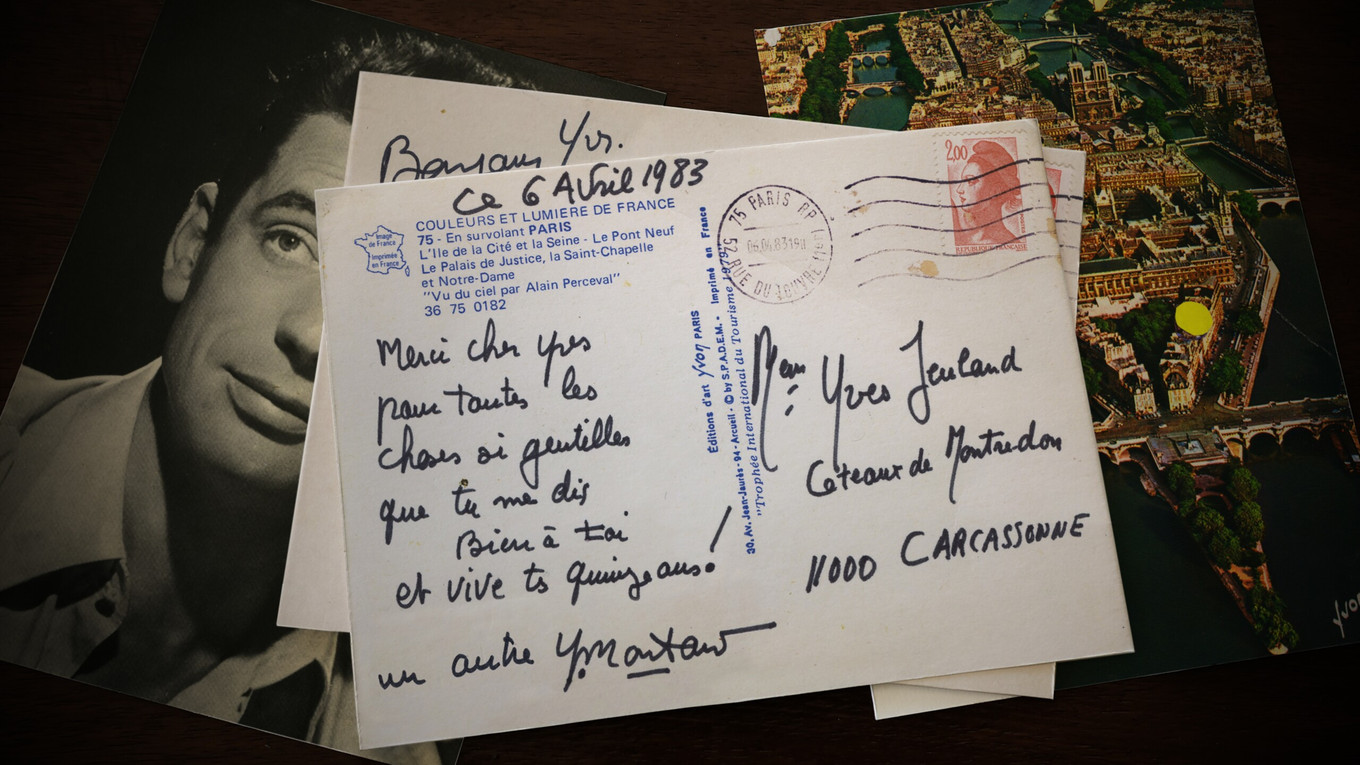 Bonjour Yves.
ce 6 Avril 1983
COULEURS ET LUMIERE DE FRANCE
75 - En survolant PARIS
L'Ile de la Cité et la Seine - Le Pont Neuf
Le Palais de Justice, la Sainte-Chapelle
et Notre-Dame
"Vu du ciel par Alain Perceval"
36 75 0182
Image
de France
Imprimée
en France
Merci cher Yves
pour toutes les
choses si gentilles
que tu me dis
Bien à toi
et vive ts quinze ans!
un autre Y. Montand
Éditions d'art Yvon PARIS
30. Av. Jean-Jaurès - 94 - Arcueil - © by S.P.A.D.E.M. - Imprimé en France
"Trophée International du Tourisme 1979"
75 PARIS RP
06.04.83 19H
52 RUE DU LOUVRE (1er)
2,00
REPUBLIQUE FRANÇAISE
Yves Jeuland
Coteaux de Montredon
11000 CARCASSONNE
yvon